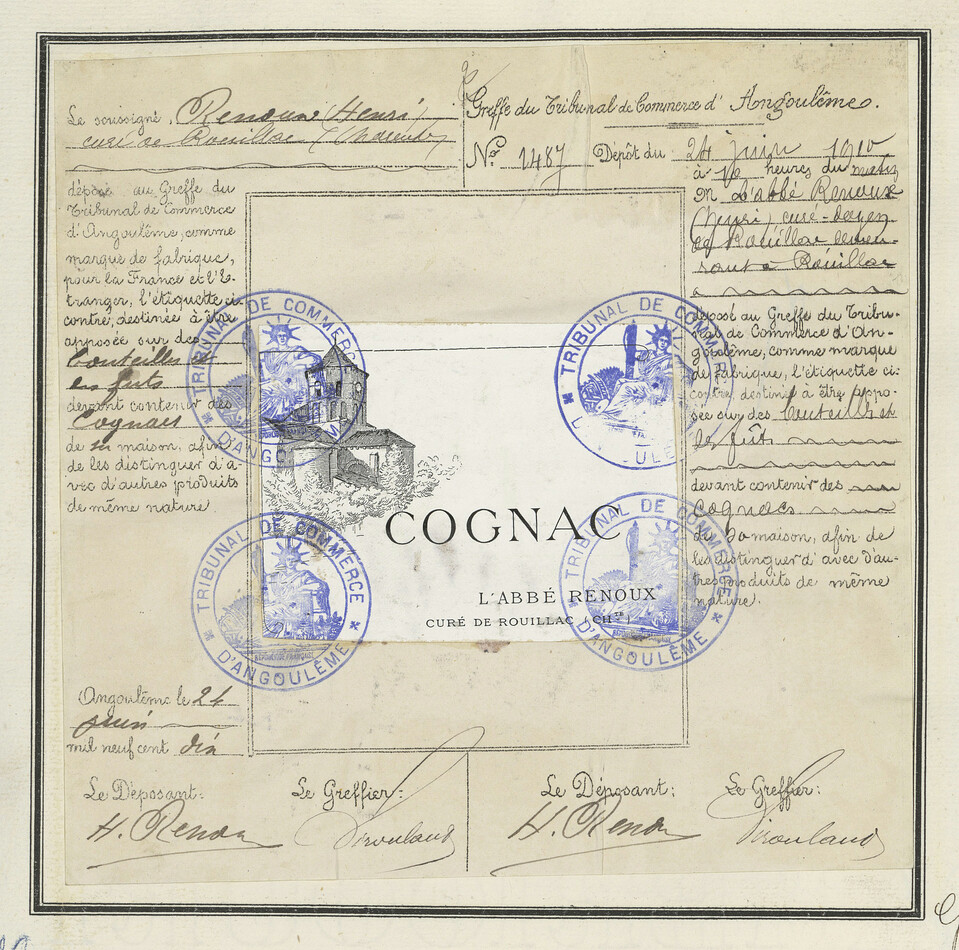 Le soussigné, Renoux (Henri)
curé de Rouillac (Charente)
déposé au Greffe du
Tribunal de Commerce
d'Angoulême, comme
marque de fabrique,
pour la France et l'É-
tranger, l'étiquette ci-
contre, destinée à être
apposée sur des
bouteilles et
en futs
devant contenir des
Cognacs
de sa maison, afin
de les distinguer d'a-
vec d'autres produits
de même nature
Angoulême le 24
juin
mil neuf cent dix
Le Déposant:
H. Renoux
Le Greffier:
Greffe du Tribunal de Commerce d'Angoulême.
No 1487 Dépôt du 24 juin 1910
à 10 heures du matin
M L'abbé Renoux
(Henri) curé-doyen
de Rouillac demeu-
rant à Rouillac
déposé au Greffe du Tribu-
nal de Commerce d'An-
goulême, comme marque
de fabrique, l'étiquette ci-
contre, destiné à être appo-
sée sur des bouteilles et
les fûts
devant contenir des
cognacs.
de sa maison, afin de
les distinguer d'avec d'au-
tres produits de même
nature.
Le Déposant:
H. Renoux
Le Greffier:
COGNAC
L'ABBÉ RENOUX
CURÉ DE ROUILLAC (CHTE)
TRIBUNAL DE COMMERCE
D'ANGOULÊME
TRIBUNAL DE COMMERCE
TRIBUNAL DE COMMERCE
D'ANGOULÊME
RÉPUBLIQUE FRANÇAISE
TRIBUNAL DE COMMERCE
D'ANGOULÊME